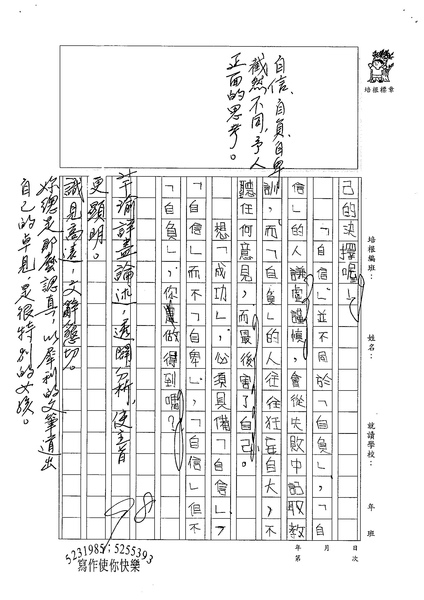 培根標章
培根編班：
姓名：
就讀學校：
年 班
年 月 日
第 次
己的決擇喔！
「自信」並不同於「自負」，「自
信」的人謙虛謹慎，會從失敗中記取教
訓，而「自負」的人往往狂妄自大，不
聽任何意見，而最後害了自己。
想「成功」，必須具備「自信」，
「自信」而不「自卑」，「自信」但不
「自負」，你 做得到嗎？
自信、自負、自卑
截然不同，予人
正面的思考。
芊瑜詳盡論述，透闢分析，使主旨
更顯明。
識見高遠，文辭懇切。
妳總是那麼認真，以犀利的文筆道出
自己的卓見，是很特別的女孩。
98
5231985；5255393
寫作使你快樂